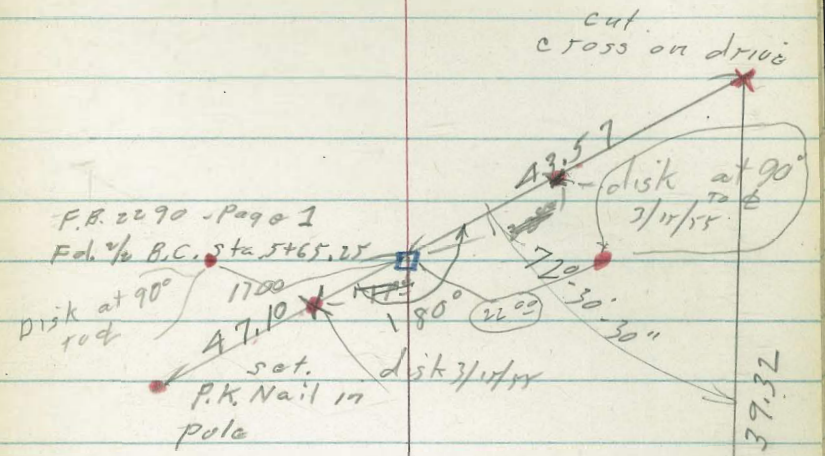 cut
cross on drive
43.57
disk at 90°
to ⅊
3/15/55
F.B. 2290 - Page 1
Fd. B.C. Sta. 5+65.25
Disk at 90°
17.00
47.10
180°
22.00
72°-30'-30"
set.
P.K. Nail in
pole
disk 3/15/55
39.32